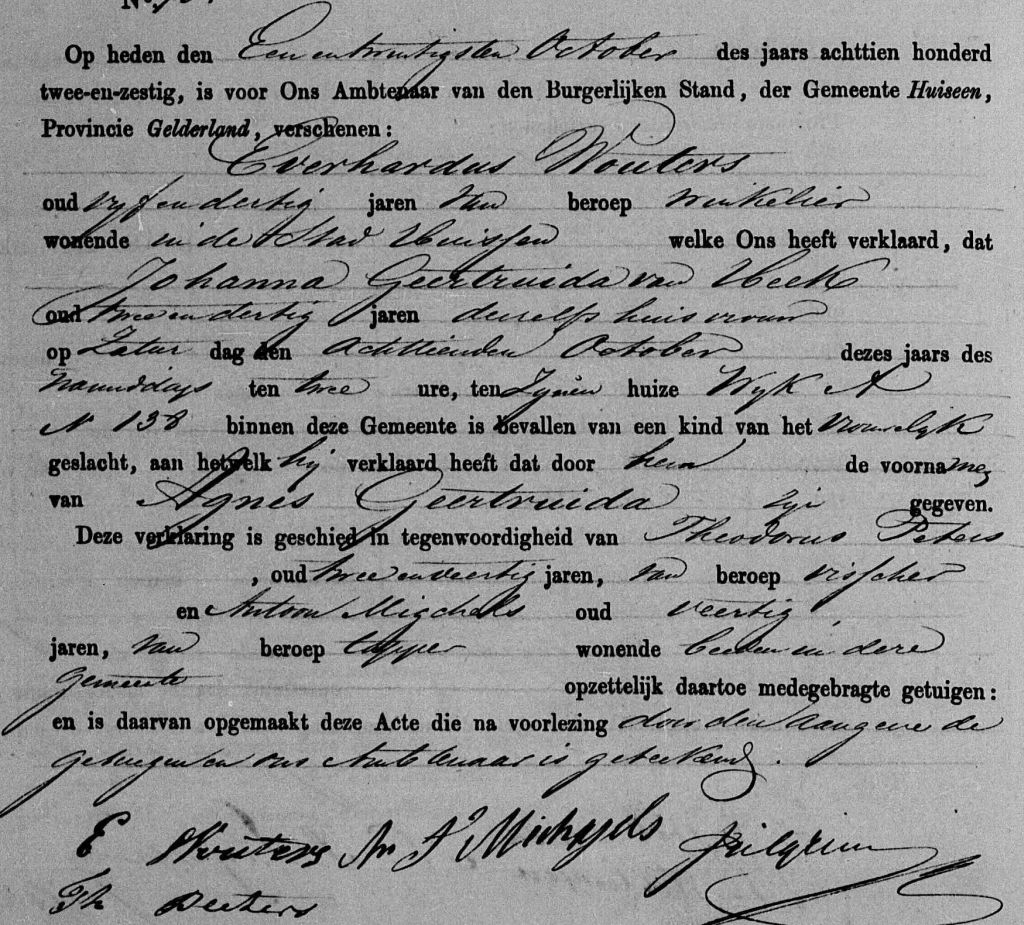 No.
Op heden den Eenentwintigsten October des jaars achttien honderd
twee-en-zestig, is voor Ons Ambtenaar van den Burgerlijken Stand, der Gemeente Huiseen,
Provincie Gelderland, verschenen:
Everhardus Wouters
oud vyfendertig jaren van beroep winkelier
wonende in de Stad Huissen welke Ons heeft verklaard, dat
Johanna Geertruida van Heek
oud tweeendertig jaren deszelfs huisvrouw
op Zatur dag den Achttienden October dezes jaars des
namiddags ten twee ure, ten Zynen huize Wyk A
N 138 binnen deze Gemeente is bevallen van een kind van het vrouwelyk
geslacht, aan hetwelk hy verklaard heeft dat door hem de voornamen
van Agnes Geertruida zyn gegeven.
Deze verklaring is geschied in tegenwoordigheid van Theodorus Peters
, oud tweeenveertig jaren, van beroep visscher
en Antoon Migchels oud veertig
jaren, van beroep tapper wonende beiden in deze
gemeente opzettelijk daartoe medegebragte getuigen:
en is daarvan opgemaakt deze Acte die na voorlezing door den aangever de
getuigen en ons Ambtenaar is geteekend.
E Wouters An J Michaels Pilgrim
Th Peeters